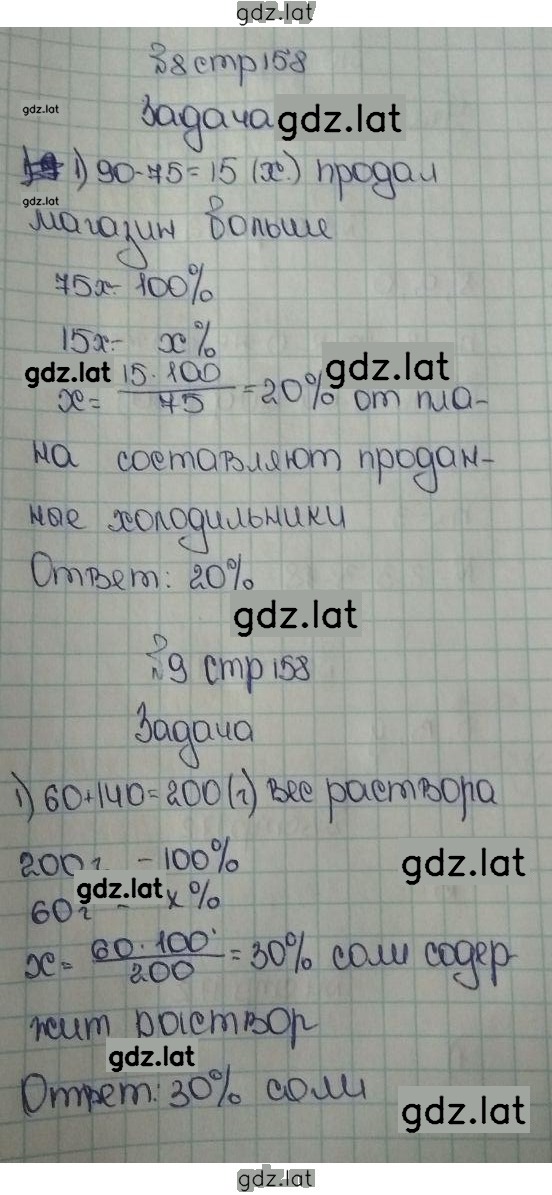 gdz.lat
№8 стр 158
gdz.lat
Задача gdz.lat
1) 90-75=15 (х.) продал
gdz.lat
магазин больше
75х- 100%
15х- х%
gdz.lat 15·100 gdz.lat
х= 75 =20% от пла-
на составляют продан-
ные холодильники
Ответ: 20%
gdz.lat
№9 стр 158
Задача
1) 60+140=200(г) вес раствора
200г -100%
gdz.lat gdz.lat
60г - х%
х= 60·100 = 30% соли содер
200
жит раствор
gdz.lat
Ответ: 30% соли
gdz.lat
gdz.lat